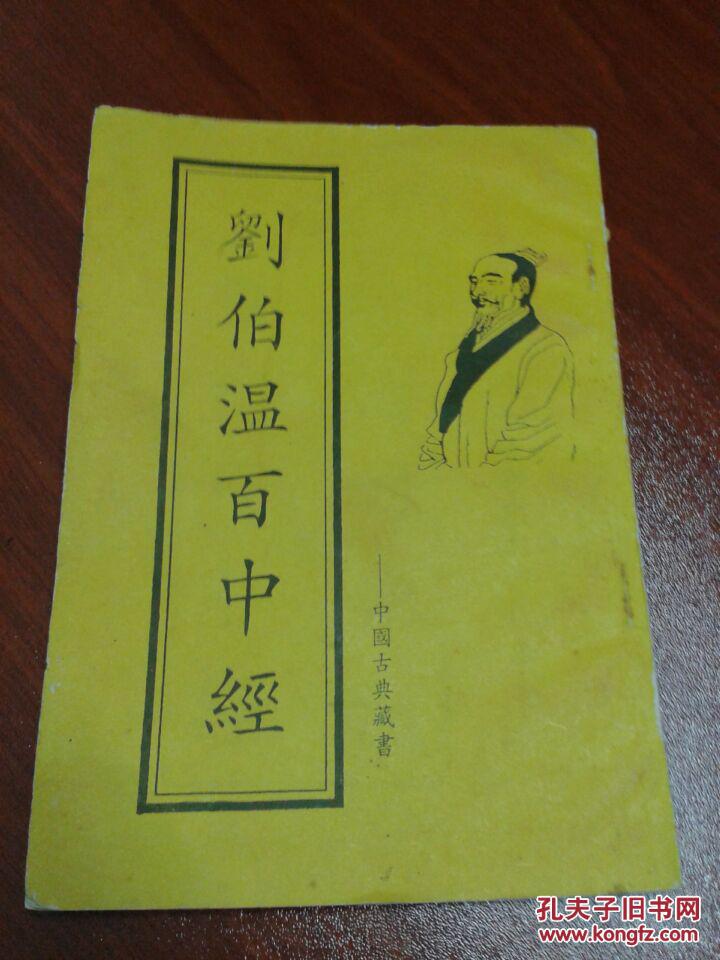 劉伯温百中經
——中國古典藏書
孔夫子旧书网
www.kongfz.com